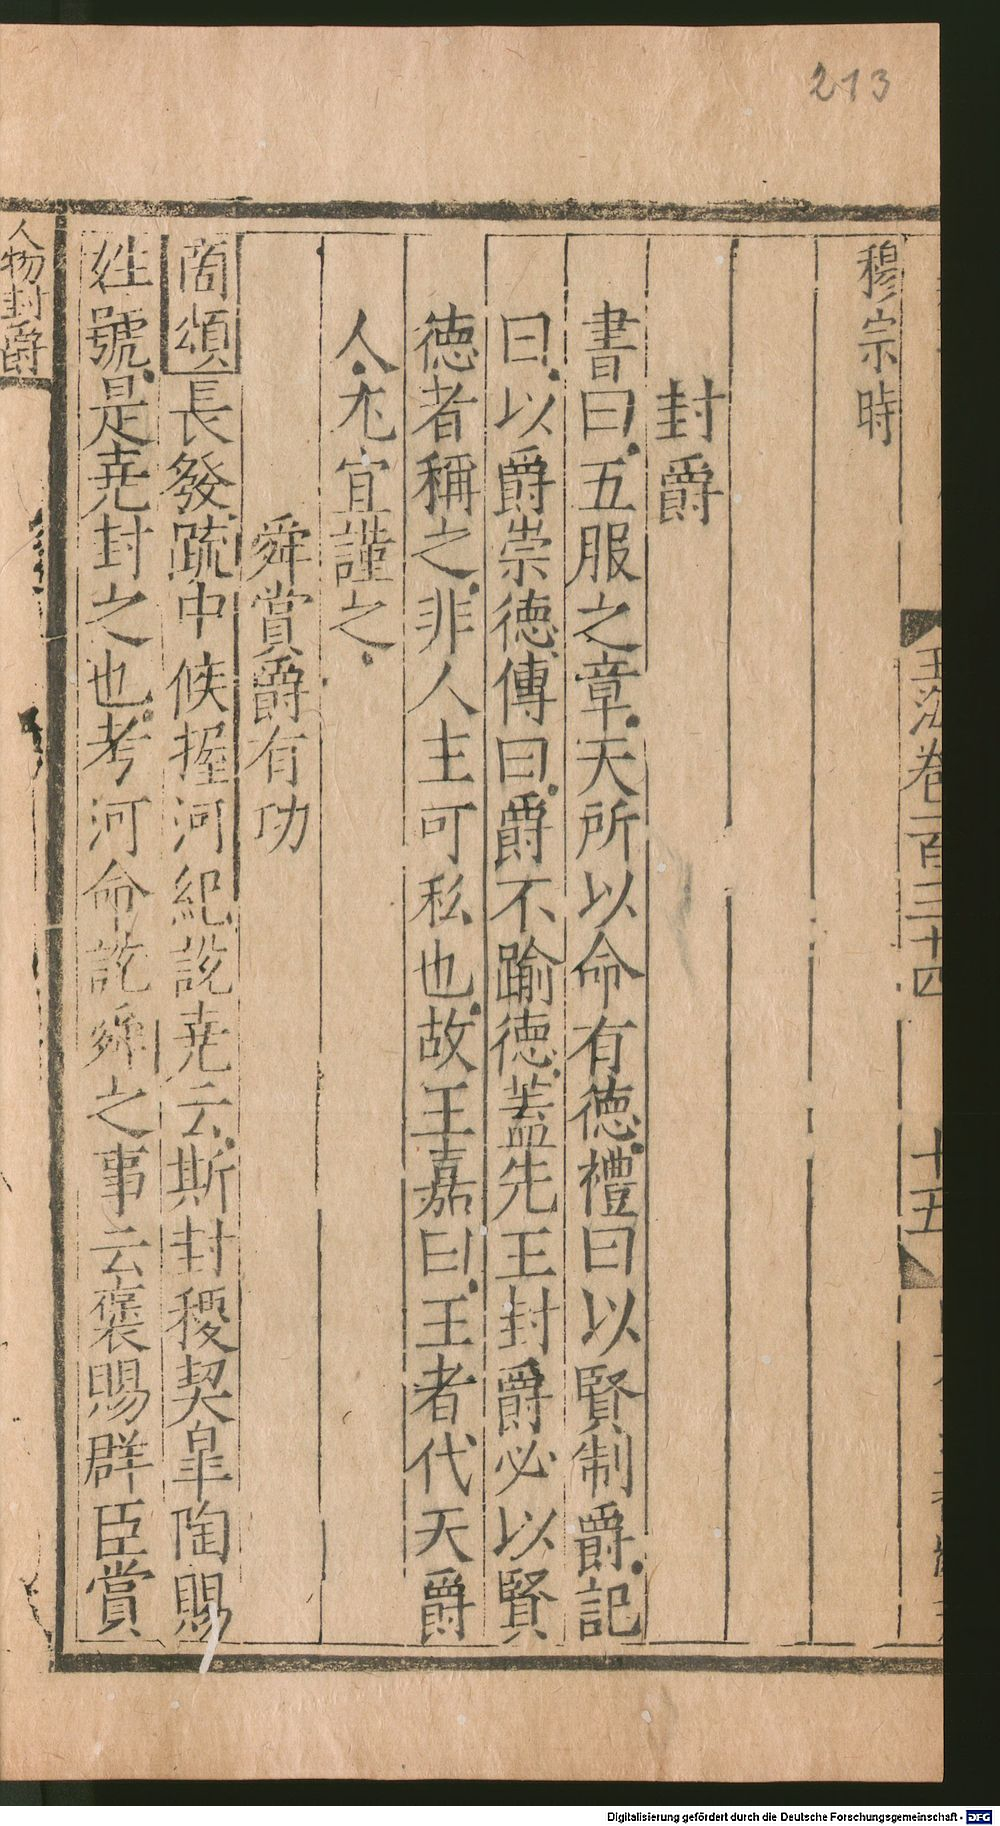 213
玉海卷一百三十四
十五
穆宗時
封爵
書曰五服之章天所以命有德禮曰以賢制爵記
曰以爵崇德傳曰爵不踰德蓋先王封爵必以賢
德者稱之非人主可私也故王嘉曰王者代天爵
人尤宜謹之
舜賞爵有功
商頌長發疏中候握河紀說堯云斯封稷契皐陶賜
姓號是堯封之也考河命說舜之事云褒賜群臣賞
人物封爵
Digitalisierung gefördert durch die Deutsche Forschungsgemeinschaft - DFG